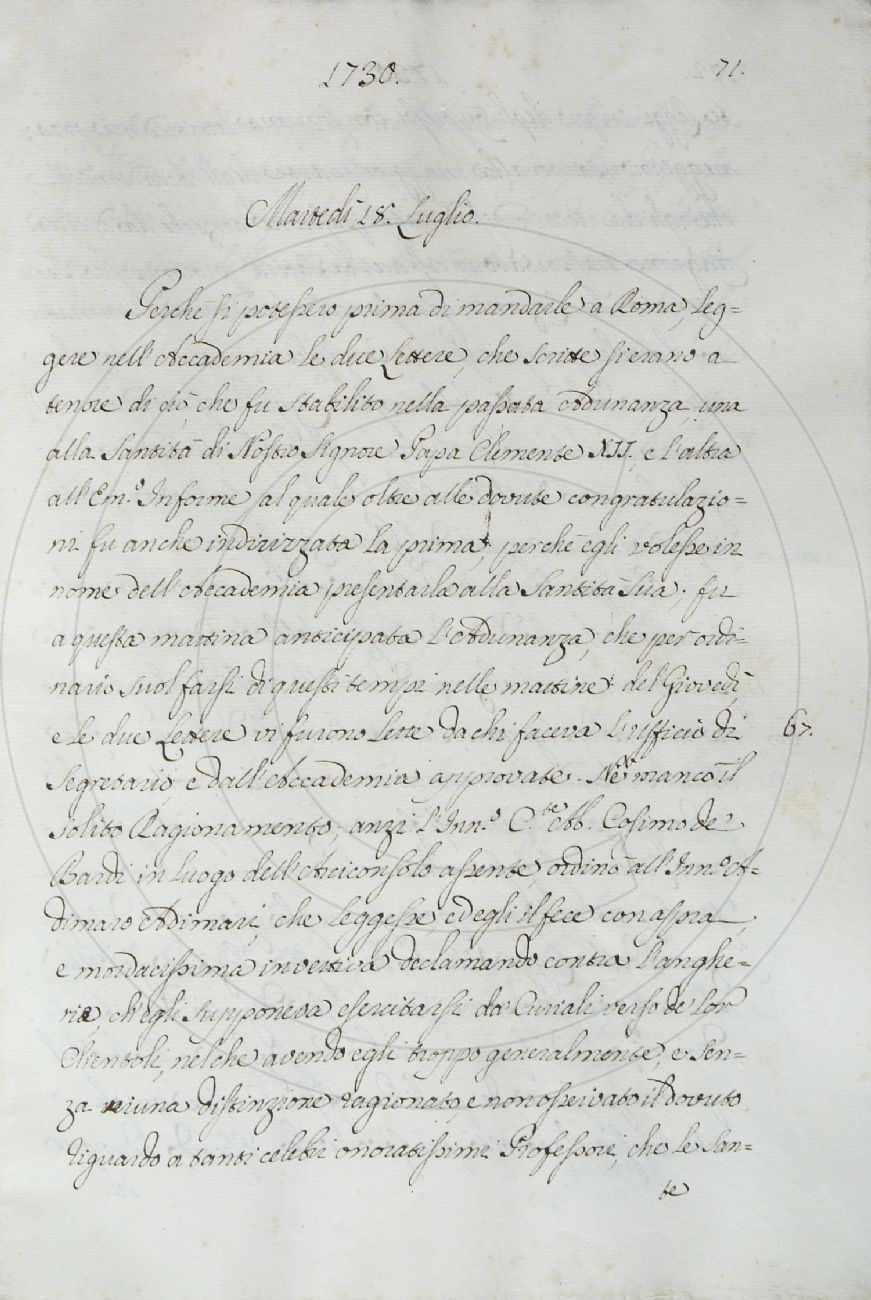 1730.
71.
Martedì 18. Luglio.
Perchè si potessero prima di mandarle a Roma, leg=
gere nell'Accademia le due Lettere, che scritte si erano a
tenore di ciò, che fu stabilito nella passata Adunanza, una
alla Santità di Nostro Signore Papa Clemente XII., e l'altra
all'Em.º Informe, al quale oltre alle dovute congratulazio=
ni fu anche indirizzata la prima, perchè egli volesse in
nome dell'Accademia presentarla alla Santità Sua; fu
a questa mattina anticipata l'Adunanza, che per ordi=
nario suol farsi di questi tempi nelle mattine del Giovedì,
e le due Lettere vi furono lette da chi faceva l'ufficio di
67.
Segretario, e dall'Accademia approvate. Nè mancò il
solito Ragionamento; anzi l'Inn.º C.te Ab. Cosimo de'
Bardi in luogo dell'Arciconsolo assente, ordinò all'Inn.º A=
dimaro Adimari, che leggesse ed egli il fece con aspra,
e mordacissima invettiva declamando contra l'anghe=
rie, ch'egli supponeva esercitarsi da' Curiali verso de' Lor
Clientoli, nel che avendo egli troppo generalmente, e sen=
za niuna distinzione ragionato, e non osservato il dovuto
riguardo a tanti celebri onoratissimi Professori, che le san=
te